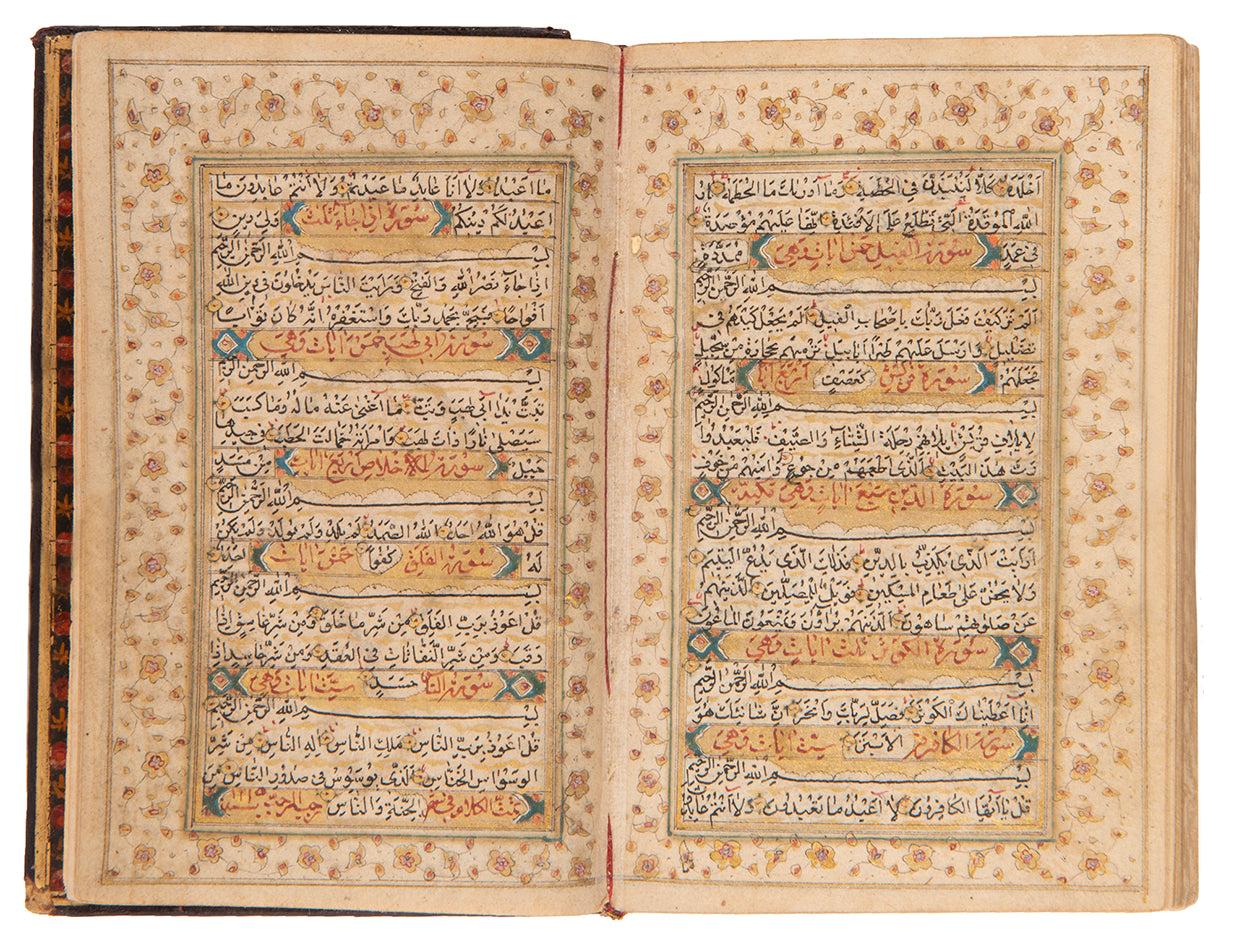 أخلده كلا لينبذن في الحطمة وما أدريك ما الحطمة نار
الله الموقدة التي تطلع على الأفئدة إنها عليهم مؤصدة
في عمد سورة الفيل خمس آيات وهي ممددة
بسم الله الرحمن الرحيم
ألم تر كيف فعل ربك بأصحاب الفيل ألم يجعل كيدهم في
تضليل وأرسل عليهم طيرا أبابيل ترميهم بحجارة من سجيل
فجعلهم سورة قريش كعصف أربع آيات مأكول
بسم الله الرحمن الرحيم
لإيلاف قريش إيلافهم رحلة الشتاء والصيف فليعبدوا
رب هذا البيت الذي أطعمهم من جوع وآمنهم من خوف
سورة الدين سبع آيات وهي مكية
بسم الله الرحمن الرحيم
أرأيت الذي يكذب بالدين فذلك الذي يدع اليتيم
ولا يحض على طعام المسكين فويل للمصلين الذينهم
عن صلوتهم ساهون الذينهم يراؤن ويمنعون الماعون
سورة الكوثر ثلث آيات وهي
بسم الله الرحمن الرحيم
إنا أعطيناك الكوثر فصل لربك وانحر إن شانئك هو
سورة الكافرون الأبتر ست آيات وهي
بسم الله الرحمن الرحيم
قل يا أيها الكافرون لا أعبد ما تعبدون ولا أنتم عابدون
ما أعبد ولا أنا عابد ما عبدتم ولا أنتم عابدون ما
أعبد لكم دينكم سورة إذا جاء ثلث ولي دين
بسم الله الرحمن الرحيم
إذا جاء نصر الله والفتح ورأيت الناس يدخلون في دين الله
أفواجا فسبح بحمد ربك واستغفره إنه كان توابا
سورة أبي لهب خمس آيات وهي
بسم الله الرحمن الرحيم
تبت يدا أبي لهب وتب ما أغنى عنه ماله وما كسب
سيصلى نارا ذات لهب وامرأته حمالة الحطب في جيدها
حبل سورة الإخلاص أربع آيات من مسد
بسم الله الرحمن الرحيم
قل هو الله أحد الله الصمد لم يلد ولم يولد ولم يكن
له سورة الفلق كفوا خمس آيات أحد
بسم الله الرحمن الرحيم
قل أعوذ برب الفلق من شر ما خلق ومن شر غاسق إذا
وقب ومن شر النفاثات في العقد ومن شر حاسد إذا
سورة الناس حسد ست آيات وهي
بسم الله الرحمن الرحيم
قل أعوذ برب الناس ملك الناس إله الناس من شر
الوسواس الخناس الذي يوسوس في صدور الناس من
تمت الكلام في شهر الجنة والناس رجب المرجب ١٢١٥